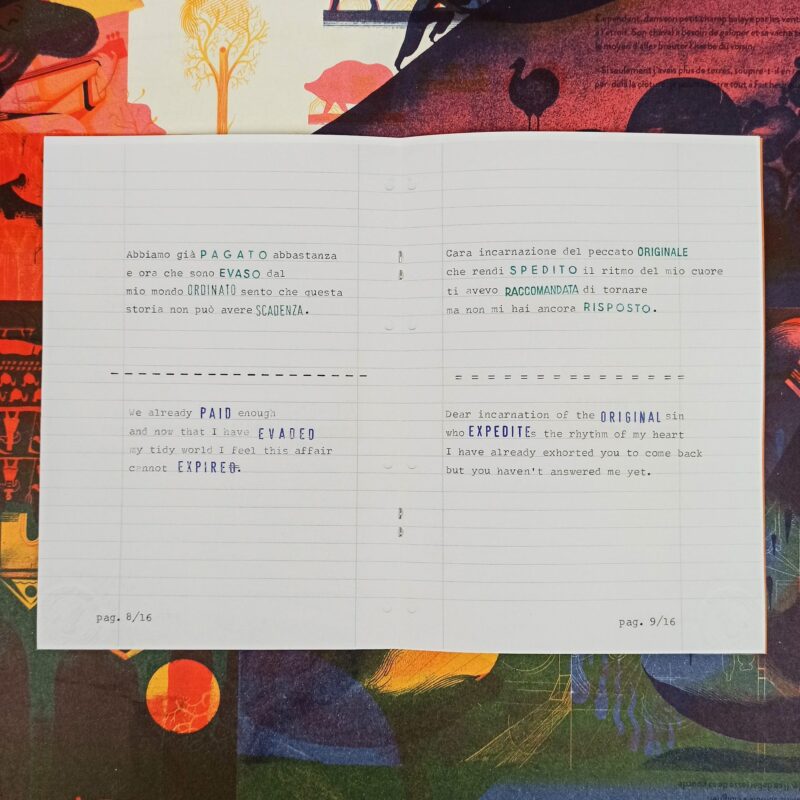 Cependant, dans son petit champ balayé par les
à l'étroit. Son cheval a besoin de galoper et sa vache
le moyen d'aller brouter l'herbe du voisin.
« Si seulement j'avais plus de terres, soupire-t-il en
par-delà la clôture, je tout à fait
Abbiamo già PAGATO abbastanza
e ora che sono EVASO dal
mio mondo ORDINATO sento che questa
storia non può avere SCADENZA.
We already PAID enough
and now that I have EVADED
my tidy world I feel this affair
cannot EXPIRED.
pag. 8/16
Cara incarnazione del peccato ORIGINALE
che rendi SPEDITO il ritmo del mio cuore
ti avevo RACCOMANDATA di tornare
ma non mi hai ancora RISPOSTO.
Dear incarnation of the ORIGINAL sin
who EXPEDITEs the rhythm of my heart
I have already exhorted you to come back
but you haven't answered me yet.
pag. 9/16